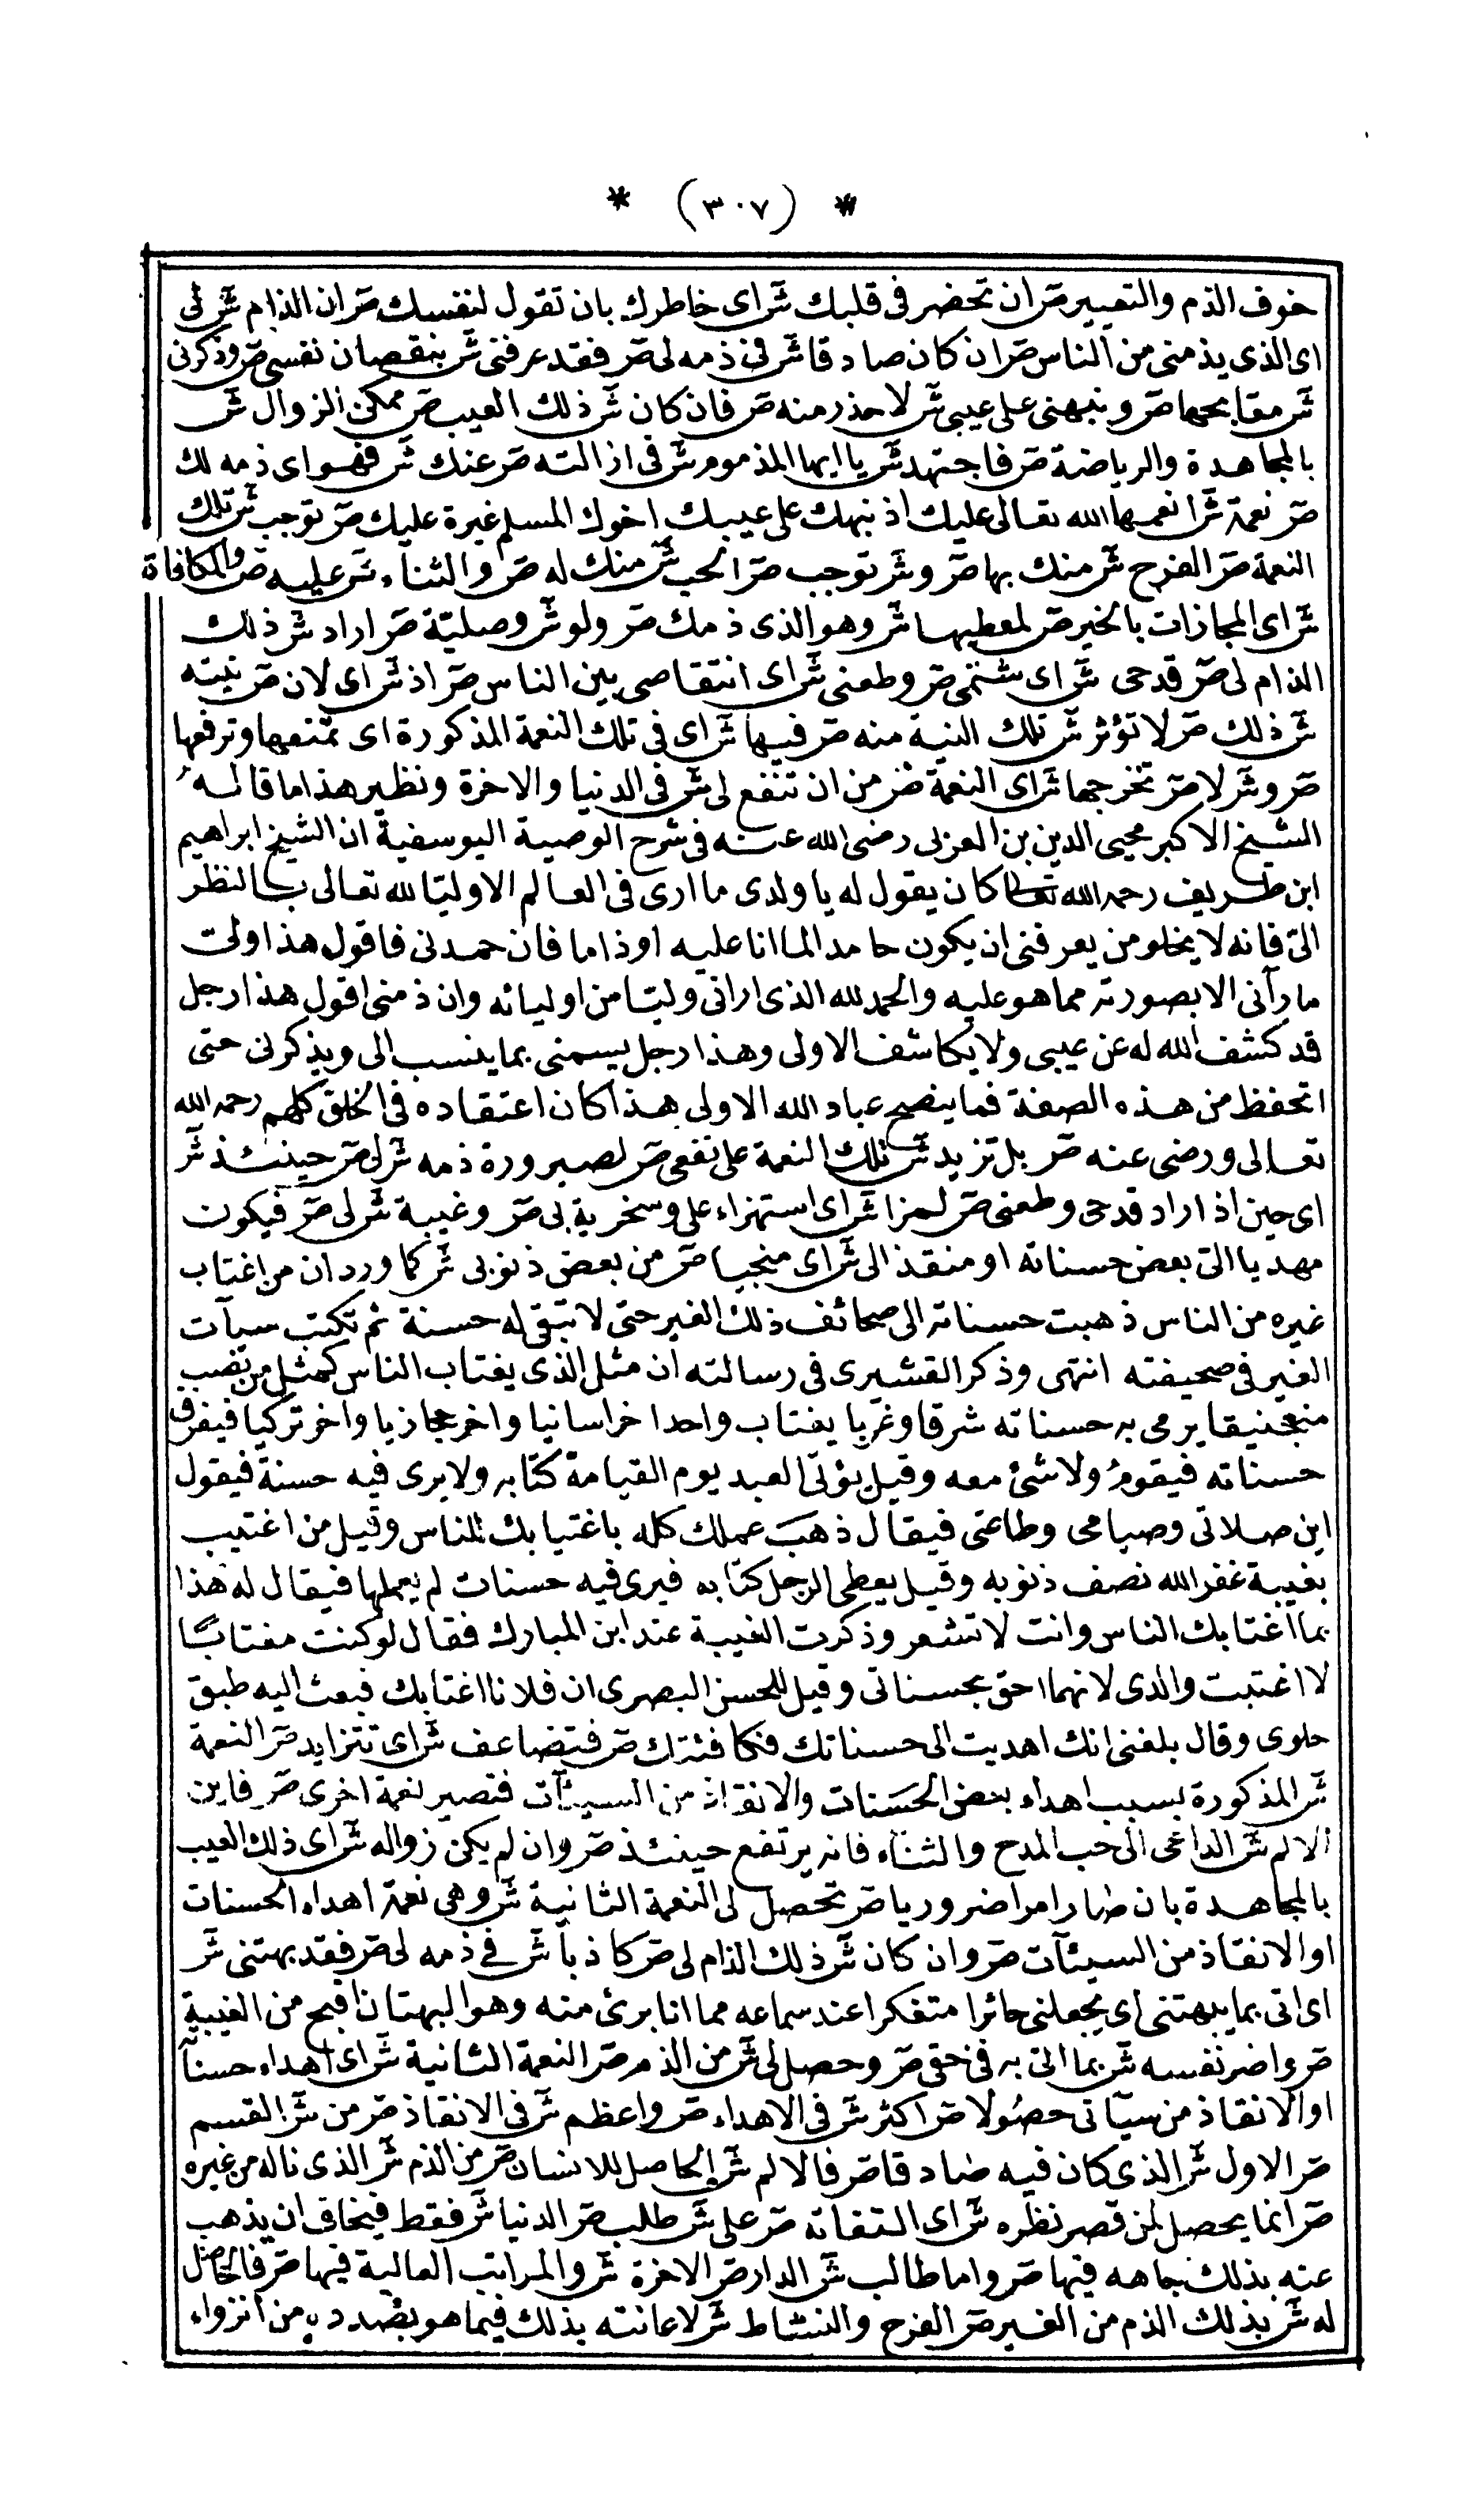 * (٣٠٧) *
خوف الذم والتعيير صر ان تحضر فى قلبك شر اى خاطرك بان تقول لنفسك صر ان الذام شر لى
اى الذى يذمنى من الناس صر ان كان صادقا شر فى ذمه لى صر فقد عرفنى شر بنقصان نفسى صر وذكرنى
شر مقابحها صر و نبهنى على عيبى شر لاحذر منه صر فان كان شر ذلك العيب صر ممكن الزوال شر
بالمجاهدة والرياضة صر فاجتهد شر يا ايها المذموم شر فى ازالته صر عنك شر فهو اى ذمه لك
صر نعمة شر انعمها الله تعالى عليك اذ نبهك على عيبك اخوك المسلم غيرة عليك صر توجب شر تلك
النعمة صر الفرح شر منك بها صر و شر توجب صر الحب شر منك له صر والثناء شر عليه صر والمكافاة
شر اى المجازات بالخير صر لمعطيها شر وهو الذى ذمك صر ولو شر وصلية صر اراد شر ذلك
الذام لى صر قدحى شر اى شتمى صر وطعنى شر اى انتقاصى بين الناس صر اذ شر اى لان صر نيته
شر ذلك صر لا تؤثر شر تلك النية منه صر فيها شر اى فى تلك النعمة المذكورة اى تمنعها وترفعها
صر و شر لا صر تخرجها شر اى النعمة صر من ان تنفع لى شر فى الدنيا والاخرة ونظير هذا ما قاله
الشيخ الاكبر محيى الدين بن العربى رضى الله عنه فى شرح الوصية اليوسفية ان الشيخ ابراهيم
ابن طريف رحمه الله تعالى كان يقول له يا ولدى ما ارى فى العالم الا وليا لله تعالى بالنظر
الىّ فانه لا يخلو من يعرفنى ان يكون حامدا لما انا عليه او ذاما فان حمدنى فاقول هذا ولىّ
ما رآنى الا بصورته مما هو عليه والحمد لله الذى ارانى وليا من اوليائه وان ذمنى اقول هذا رجل
قد كشف الله له عن عيبى ولا يكاشف الا ولى وهذا رجل يسمنى بما ينسب الى ويذكرنى حتى
اتحفظ من هذه الصفة فما ينصح عباد الله الا ولى هذا كان اعتقاده فى الخلق كلهم رحمه الله
تعالى ورضى عنه صر بل تزيد شر تلك النعمة على نفعى صر لصيرورة ذمه شر لى صر حينئذ شر
اى حين اذ اراد قدحى وطعنى صر لمزا شر اى استهزاء على وسخرية بى صر وغيبة شر لى صر فيكون
مهديا الىّ بعض حسناته او منقذ الى شر اى منجيا صر من بعض ذنوبى شر كما ورد ان من اغتاب
غيره من الناس ذهبت حسناته الى صحائف ذلك الغير حتى لا تبقى له حسنة ثم تكتب سيآت
الغير فى صحيفته انتهى وذكر القشيرى فى رسالته ان مثل الذى يغتاب الناس كمثل من نصب
منجنيقا يرمى به حسناته شرقا وغربا يغتاب واحدا خراسانيا واخر حجازيا واخر تركيا فيفرق
حسناته فيقوم ولا شئ معه وقيل يؤتى العبد يوم القيامة كتابه ولا يرى فيه حسنة فيقول
اين صلاتى وصيامى وطاعتى فيقال ذهب عملك كله باغتيابك للناس وقيل من اغتيب
بغيبة غفر الله نصف ذنوبه وقيل يعطى الرجل كتابه فيرى فيه حسنات لم يعملها فيقال له هذا
بما اغتابك الناس وانت لا تشعر وذكرت الغيبة عند ابن المبارك فقال لو كنت مغتابا
لا اغتبت والدى لانهما احق بحسناتى وقيل للحسن البصرى ان فلانا اغتابك فبعث اليه طبق
حلوى وقال بلغنى انك اهديت الى حسناتك فكافئتك صر فتضاعف شر اى تتزايد صر النعمة
شر المذكورة بسبب اهداء بعض الحسنات والانقاذ من السيئآت فتصير نعمة اخرى صر فاين
الالم شر الداعى الى حب المدح والثناء فانه يرتفع حينئذ صر وان لم يمكن زواله شر اى ذلك العيب
بالمجاهدة بان صار امرا ضروريا صر تحصل لى النعمة الثانية شر وهى نعمة اهداء الحسنات
او الانقاذ من السيئآت صر وان كان شر ذلك الذام لى صر كاذبا شر فى ذمه لى صر فقد بهتنى شر
اى اتى بما يبهتنى اى يجعلنى حائرا متفكرا عند سماعه مما انا برئ منه وهو البهتان اقبح من الغيبة
صر واضر نفسه شر بما اتى به فى حقى صر وحصل لى شر من الذم صر النعمة الثانية شر اى اهداء حسنا
او الانقاذ من سيآتى حصولا صر اكثر شر فى الاهداء صر واعظم شر فى الانقاذ صر من شر القسم
صر الاول شر الذى كان فيه صادقا صر فالالم شر الحاصل للانسان صر من الذم شر الذى ناله من غيره
صر انما يحصل لمن قصر نظره شر اى التفاته صر على شر طلب صر الدنيا شر فقط فيخاف ان يذهب
عنه بذلك جاهه فيها صر واما طالب شر الدار صر الاخرة شر والمراتب العالية فيها صر فالحاصل
له شر بذلك الذم من الغير صر الفرح والنشاط شر لاعانته بذلك فيما هو بصدده من انزواء